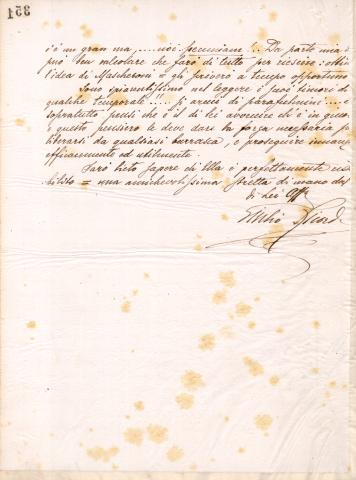 351
c'è un gran ma, .... voci pecuniarie!.. Da parte mia
può su calcolare che farò di tutto per riescire: ottima
l'idea di Mascheroni = gli scriverò a tempo opportuno
Sono spiacentissimo nel leggere i suoi timori di
qualche temporale..... si armi di parafulmini.... e
sopratutto pensi che è il di lei avvenire che è in giuoco,
e questo pensiero le deve dare la forza necessaria per
liberarsi da qualsiasi burrasca, e proseguire innanzi
efficacemente ed utilmente.
Sarò lieto sapere di Ella è perfettamente ristabilito
= una amichevolissima stretta di mano dal
di Lei Aff.
Giulio Ricordi